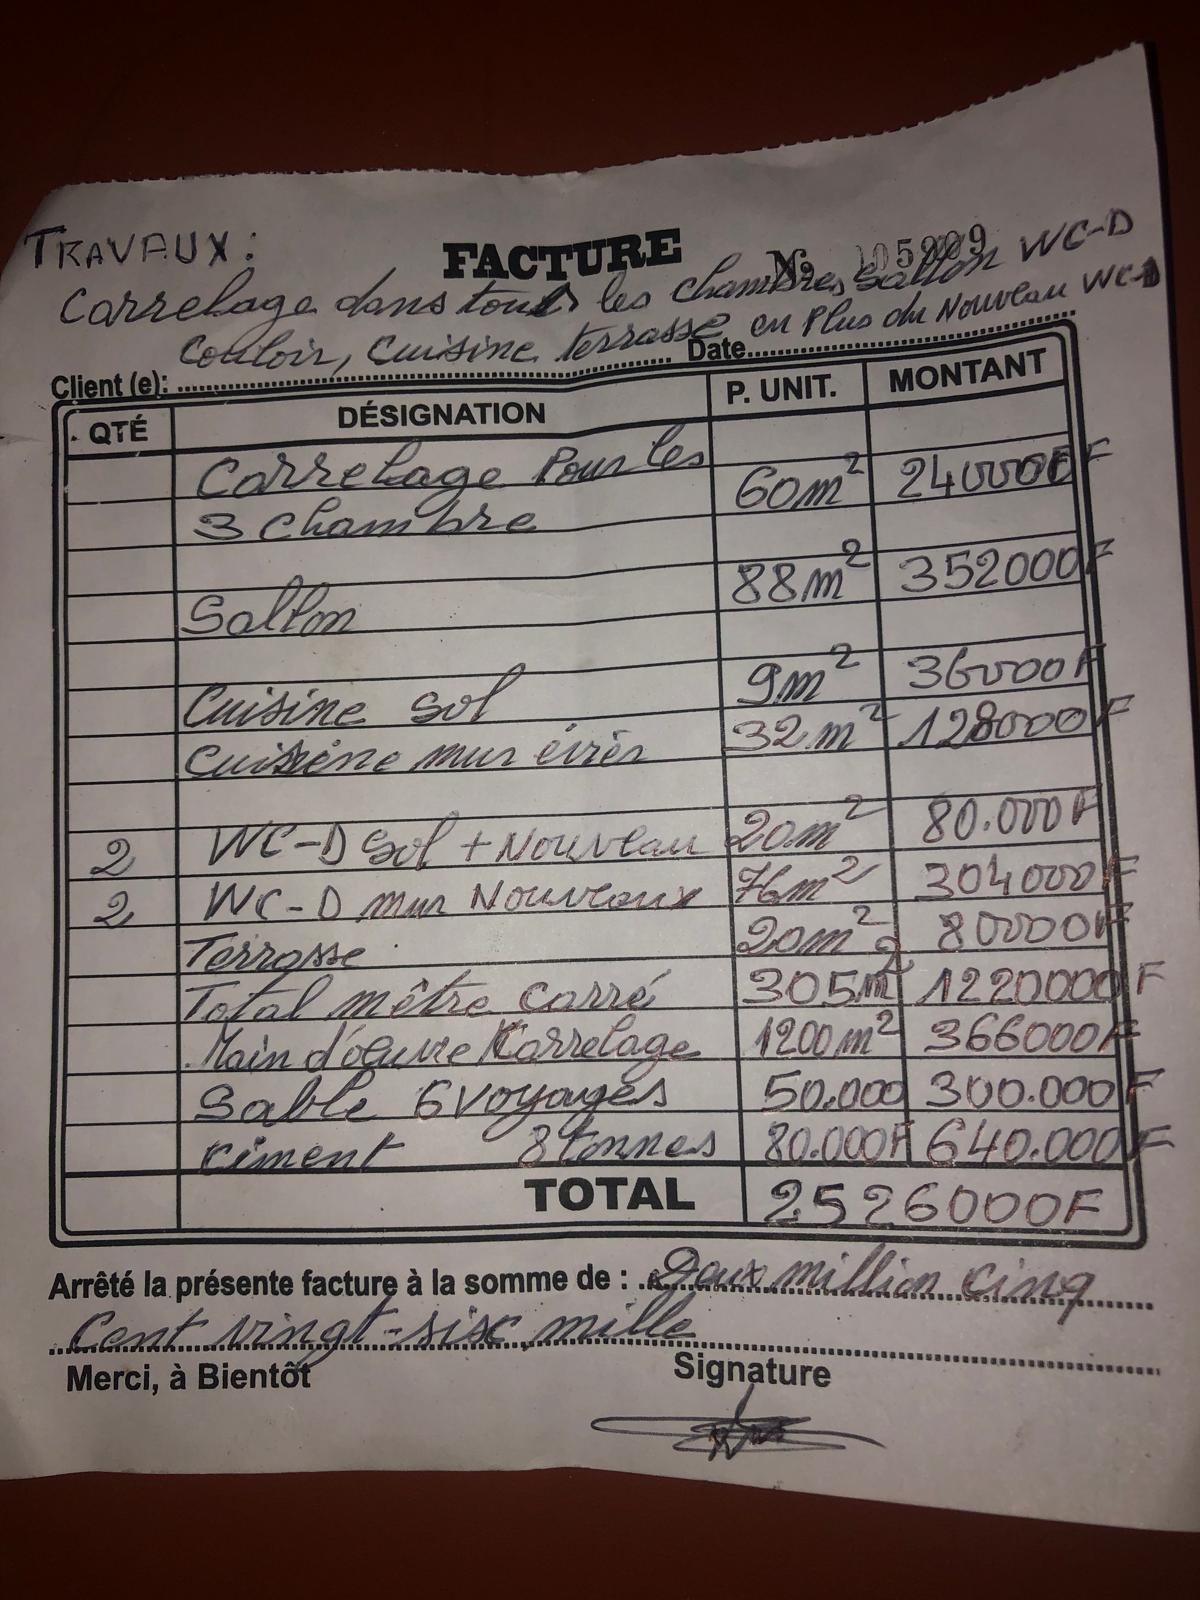 TRAVAUX:
FACTURE No 105909
Carrelage dans tous les chambres Sallon WC-D
Couloir, Cuisine terrasse en Plus du Nouveau WC-D
Client (e): Date
QTÉ DÉSIGNATION P. UNIT. MONTANT
Carrelage Pour les 60m² 240000F
3 chambre
Sallon 88m² 352000F
Cuisine sol 9m² 36000F
Cuisine mur évièr 32m² 128000F
2 WC-D Sol + Nouveau 20m² 80.000F
2 WC-D mur Nouveaux 76m² 304000F
Terrasse 20m² 80000F
Total mêtre carré 305m² 1220000F
Main d'oeuvre Karrelage 1200m² 366000F
Sable 6 Voyages 50.000 300.000F
Ciment 8 tonnes 80.000F 640.000F
TOTAL 2526000F
Arrêté la présente facture à la somme de : Deux million cinq
Cent vingt-sisc mille
Merci, à Bientôt Signature